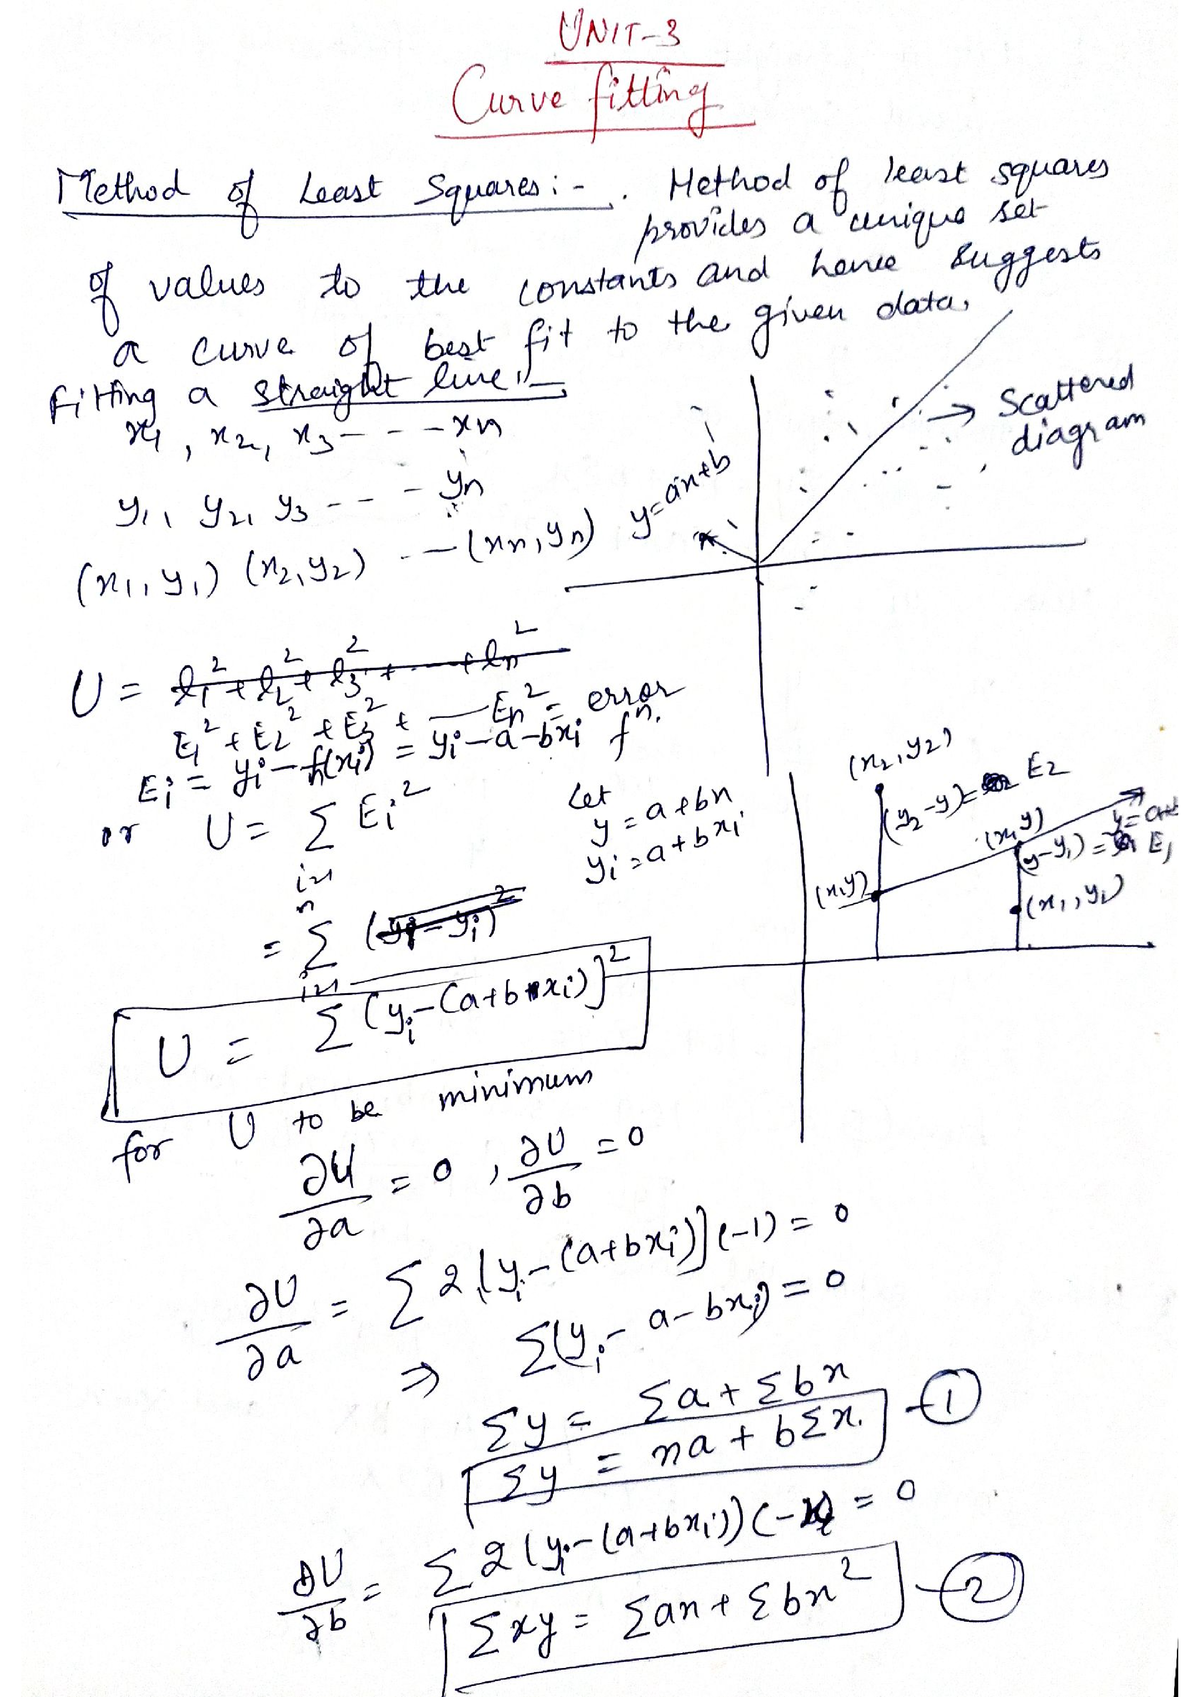 UNIT-3
Curve fitting
Method of Least Squares :- Method of least squares
provides a unique set
of values to the constants and hence suggests
a curve of best fit to the given data.
Fitting a straight line :-
x₁, x₂, x₃ - - - - xₙ
y₁, y₂, y₃ - - - yₙ
(x₁, y₁) (x₂, y₂) - - - (xₙ, yₙ)
y = ax+b
→ Scattered
diagram
U = l₁² + l₂² + l₃² + - - - + lₙ²
E₁² + E₂² + E₃² + — Eₙ² = error
fⁿ.
Eᵢ = yᵢ - f(xᵢ) = yᵢ - a - bxᵢ
or U = n Σ i=1 Eᵢ²
Let
y = a + bx
yᵢ = a + bxᵢ
(x₂, y₂)
(y₂ - y) = E₂
(x, y)
(x, y)
y = a+b
(y - y₁) = E₁
(x₁, y₁)
= n Σ i=1 (yᵢ - yᵢ)²
U = Σ (yᵢ - (a+bxᵢ)]²
for U to be minimum
∂U/∂a = 0, ∂U/∂b = 0
∂U/∂a = Σ 2 (yᵢ - (a+bxᵢ)] (-1) = 0
⇒ Σ(yᵢ - a - bxᵢ) = 0
Σy = Σa + Σbx
Σy = na + bΣx. — ①
∂U/∂b = Σ 2 (yᵢ - (a+bxᵢ)) (-xᵢ) = 0
Σxy = Σax + Σbx² — ②